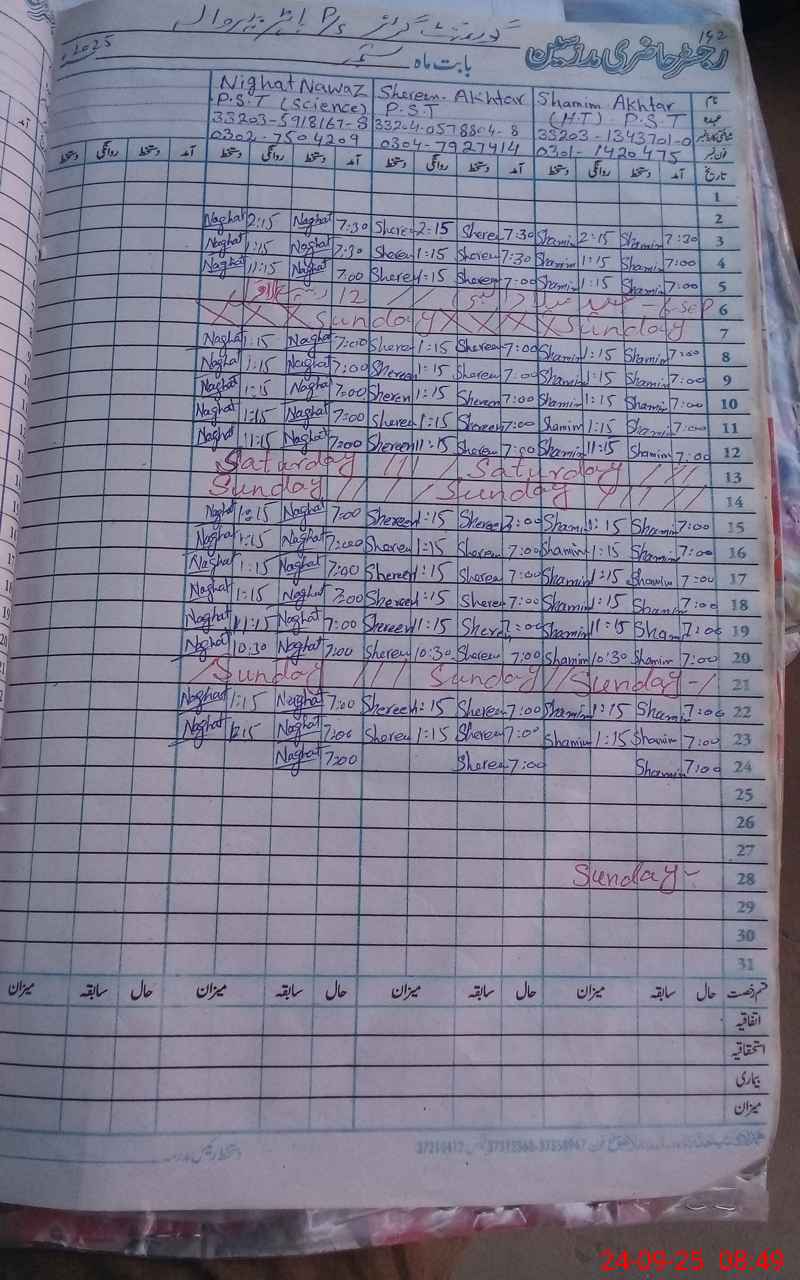 162
گورنمنٹ گرلز P/s
رجسٹر حاضری مدرسین
بابت ماہ ستمبر 2025
نام Shamim Akhtar Shereen Akhtar Nighat Nawaz
عہدہ (H.T) P.S.T P.S.T P.S.T (Science)
33203-1343701-0 33204-0578804-8 33203-5918167-8
فون نمبر 0301-1420475 0304-7927414 0302-7504209
تاریخ آمد دستخط روانگی دستخط آمد دستخط روانگی دستخط آمد دستخط روانگی دستخط آمد دستخط روانگی دستخط
1
2
3 7:30 Shamim 2:15 Shamim 7:30 Shereen 2:15 Shereen 7:30 Naghat 2:15 Naghat
4 7:00 Shamim 1:15 Shamim 7:30 Shereen 1:15 Shereen 7:30 Naghat 1:15 Naghat
5 7:00 Shamim 1:15 Shamim 7:00 Shereen 1:15 Shereen 7:00 Naghat 11:15 Naghat
6 6-SeP عید میلاد النبی 12 ربیع الاول
7 Sunday X X X X Sunday X X X
8 7:00 Shamim 1:15 Shamim 7:00 Shereen 1:15 Shereen 7:00 Naghat 1:15 Naghat
9 7:00 Shamim 1:15 Shamim 7:00 Shereen 1:15 Shereen 7:00 Naghat 1:15 Naghat
10 7:00 Shamim 1:15 Shamim 7:00 Shereen 1:15 Shereen 7:00 Naghat 1:15 Naghat
11 7:00 Shamim 1:15 Shamim 7:00 Shereen 1:15 Shereen 7:00 Naghat 1:15 Naghat
12 7:00 Shamim 11:15 Shamim 7:00 Shereen 11:15 Shereen 7:00 Naghat 11:15 Naghat
13 Saturday Saturday
14 Sunday Sunday
15 7:00 Shamim 1:15 Shamim 7:00 Shereen 1:15 Shereen 7:00 Naghat 1:15 Naghat
16 7:00 Shamim 1:15 Shamim 7:00 Shereen 1:15 Shereen 7:00 Naghat 1:15 Naghat
17 7:00 Shamim 1:15 Shamim 7:00 Shereen 1:15 Shereen 7:00 Naghat 1:15 Naghat
18 7:00 Shamim 1:15 Shamim 7:00 Shereen 1:15 Shereen 7:00 Naghat 1:15 Naghat
19 7:00 Shamim 11:15 Shamim 7:00 Shereen 11:15 Shereen 7:00 Naghat 11:15 Naghat
20 7:00 Shamim 10:30 Shamim 7:00 Shereen 10:30 Shereen 7:00 Naghat 10:30 Naghat
21 Sunday Sunday Sunday
22 7:00 Shamim 1:15 Shamim 7:00 Shereen 1:15 Shereen 7:00 Naghat 1:15 Naghat
23 7:00 Shamim 1:15 Shamim 7:00 Shereen 1:15 Shereen 7:00 Naghat 1:15 Naghat
24 7:00 Shamim 7:00 Shereen 7:00 Naghat
25
26
27
28 Sunday
29
30
31
قسم رخصت حال سابقہ میزان حال سابقہ میزان حال سابقہ میزان حال سابقہ میزان
اتفاقیہ
استحقاقیہ
بیماری
میزان
دستخط رئیس مدرسہ
24-09-25 08:49